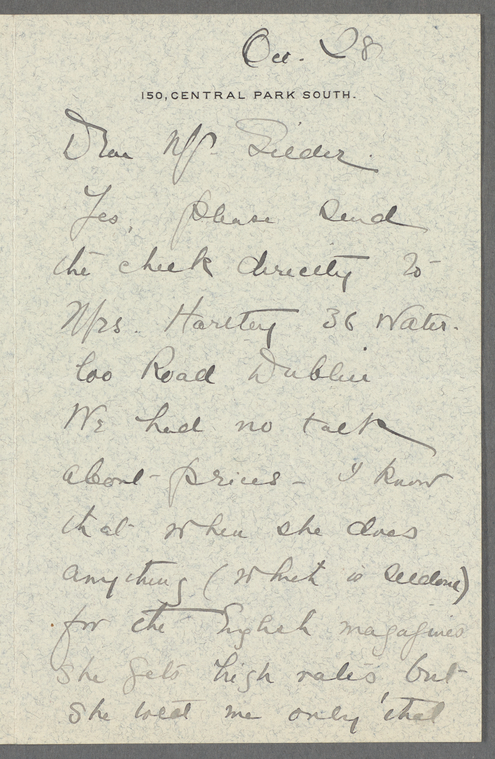 Oct. 28
150, CENTRAL PARK SOUTH.
Dear Mr. Gilder.
Yes, please send
the check directly to
Mrs. Hartley 36 Water-
loo Road Dublin
We had no talk
about prices - I know
that when she does
anything (which is seldom)
for the English magazines
she gets high rates but
she told me only that